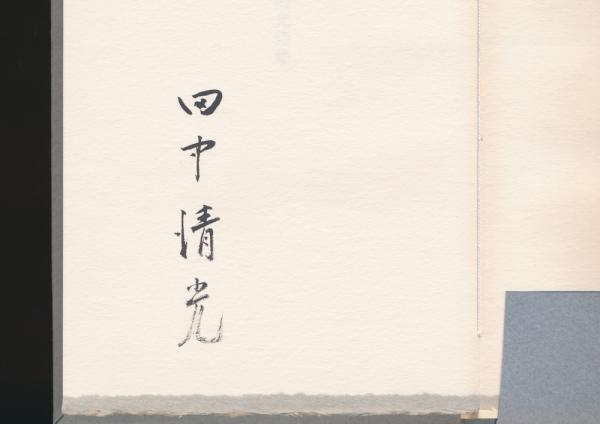 田中清光